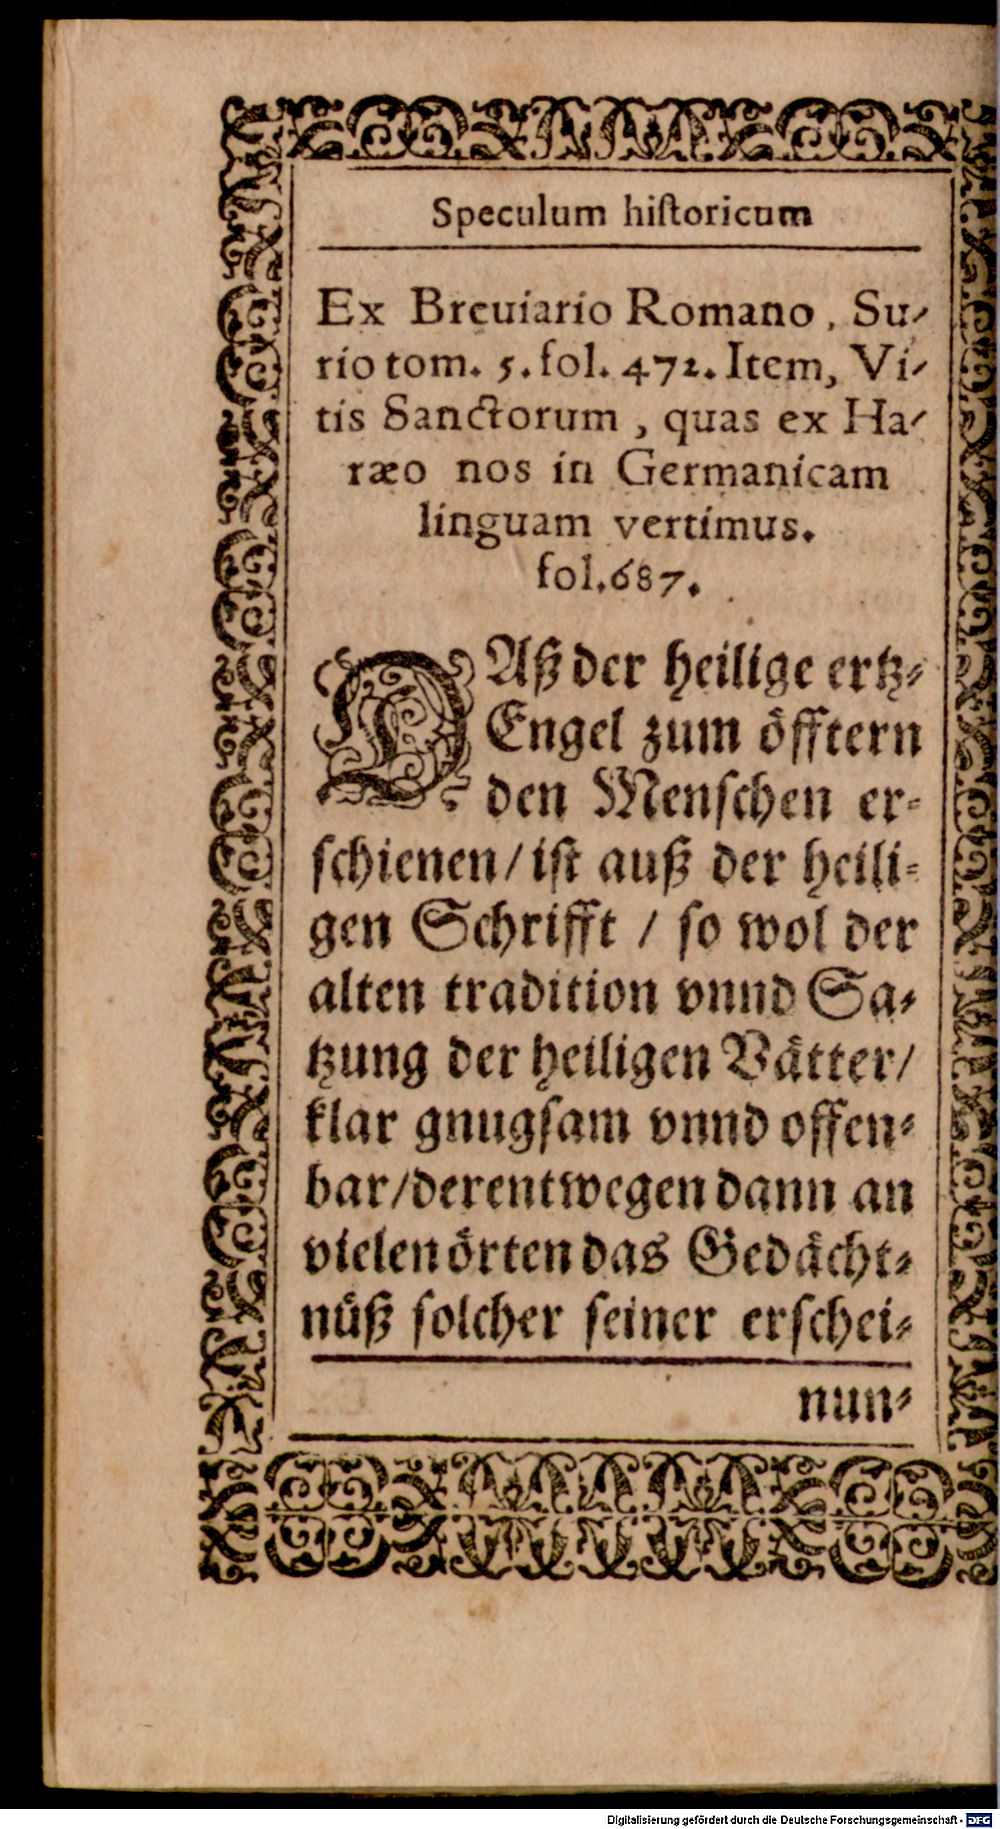 Speculum historicum
Ex Breuiario Romano, Su-
rio tom. 5. fol. 472. Item, Vi-
tis Sanctorum, quas ex Ha-
ræo nos in Germanicam
linguam vertimus.
fol. 687.
DAß der heilige ertz-
Engel zum öfftern
den Menschen er-
schienen/ ist auß der heili-
gen Schrifft / so wol der
alten tradition vnnd Sa-
tzung der heiligen Vätter/
klar gnugsam vnnd offen-
bar/ derentwegen dann an
vielen örten das Gedächt-
nüß solcher seiner erschei-
nun-
Digitalisierung gefördert durch die Deutsche Forschungsgemeinschaft - DFG